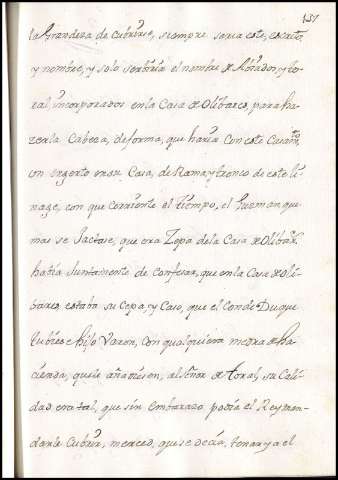 151
la Grandeza de Cubrirse, siempre seria este, escrito,
y nombre, y solo serbiria el nombre de Abiados, y to-
ral, incorporados en la Casa de Olibares, para ha-
zerla Cabeza, de forma, que haria con este Casamto
un engerto en su Casa, de Rama y tronco de este li-
nage, con que corriente el tiempo, el Guzman que
mas se Jactase, que era Zepa de la Casa de Olibars,
habia Juntamente de confesar, que en la Casa de Oli-
bares, estaba su Cepa, y Caso, que el Conde Duque
tubiese hijo Varon, con qualquiera medra de ha-
cienda, que le añadiesen, al Señor de toral, su Cali-
dad era tal, que sin embarazo podia el Rey man-
darle Cubrir, merced, que se decia, tenar ya el